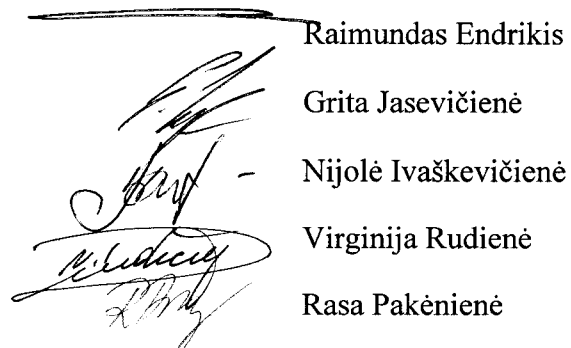 Raimundas Endrikis
Grita Jasevičienė
Nijolė Ivaškevičienė
Virginija Rudienė
Rasa Pakėnienė